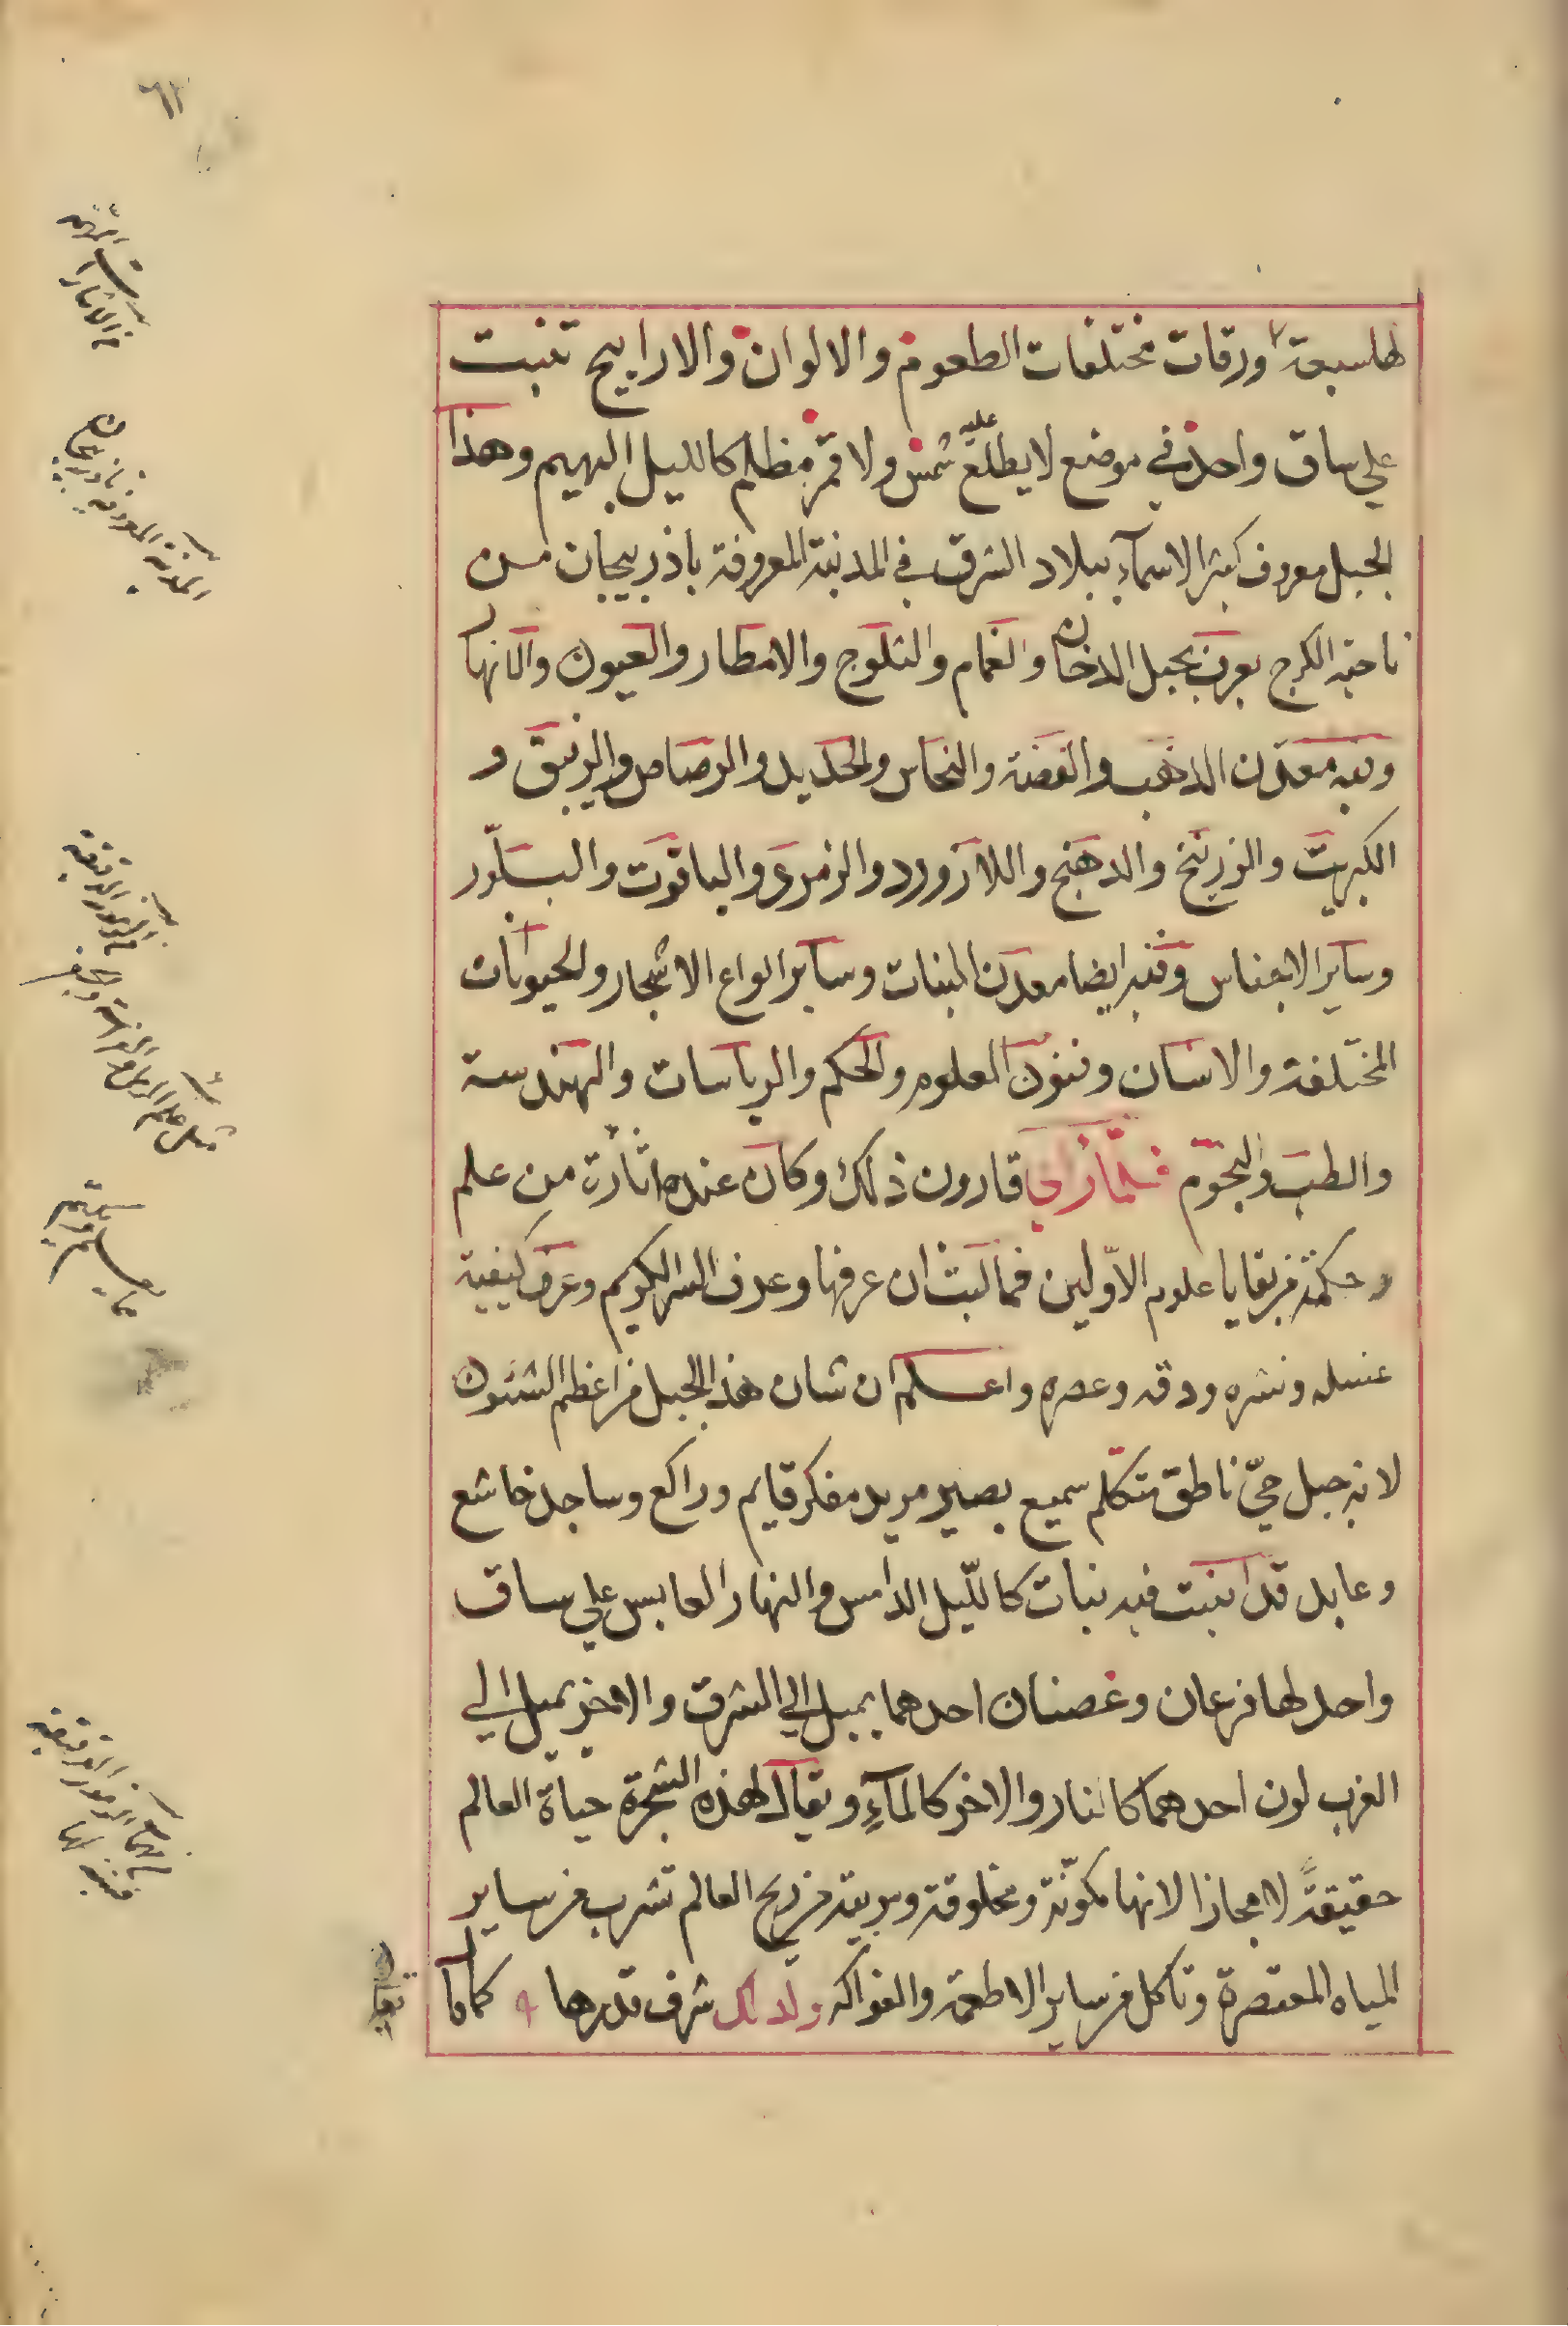 ٦٢
لها سبعة ورقات مختلفات الطعوم والالوان والاراييح تنبت
علي ساق واحد في موضع لا يطلع عليه شمس ولا قمر مظلم كالليل البهيم وهذا
الجبل معروف كثير الاسمآء ببلاد الشرق في المدينة المعروفة باذربيجان من
ناحية الكرج يعرف بجبل الدخان والغمام والثلوج والامطار والعيون والانهار
وفيه معدن الذهب والفضة والنحاس والحديد والرصاص والزيبق و
الكبريت والزرنيخ والدهنج واللازورد والزمرد والياقوت والبلّور
وساير الاجناس وفيه ايضا معدن النبات وساير انواع الاشجار والحيوانات
المختلفة والانسان وفنون العلوم والحكم والرياسات والهندسة
والطب والنجوم فلمّا رأي قارون ذلك وكان عنده اثارة من علم
وحكمة من بقايا علوم الاوّلين فما لبث ان عرفها وعرف السر الكريم وعرف كيفية
غسله ونشره ودقه وعصره واعلم ان شان هذا الجبل من اعظم الشئون
لانه جبل حيّ ناطق متكلم سميع بصير مريد مفكر قايم وراكع وساجد خاشع
وعابد قد انبت فيه نبات كالليل الدامس والنهار العابس علي ساق
واحد لها فرعان وغصنان احدهما يميل الي الشرق والاخر يميل الي
الغرب لون احدهما كالنار والاخر كالمآء ويقال لهذه الشجرة حياة العالم
حقيقةً لا مجازا لانها مكوّنة ومخلوقة وبرية من ريح العالم تشرب من ساير
المياه المعتصرة وتاكل من ساير الاطعمة والفواكه ولذلك شرف قدرها كما قال
تعالى